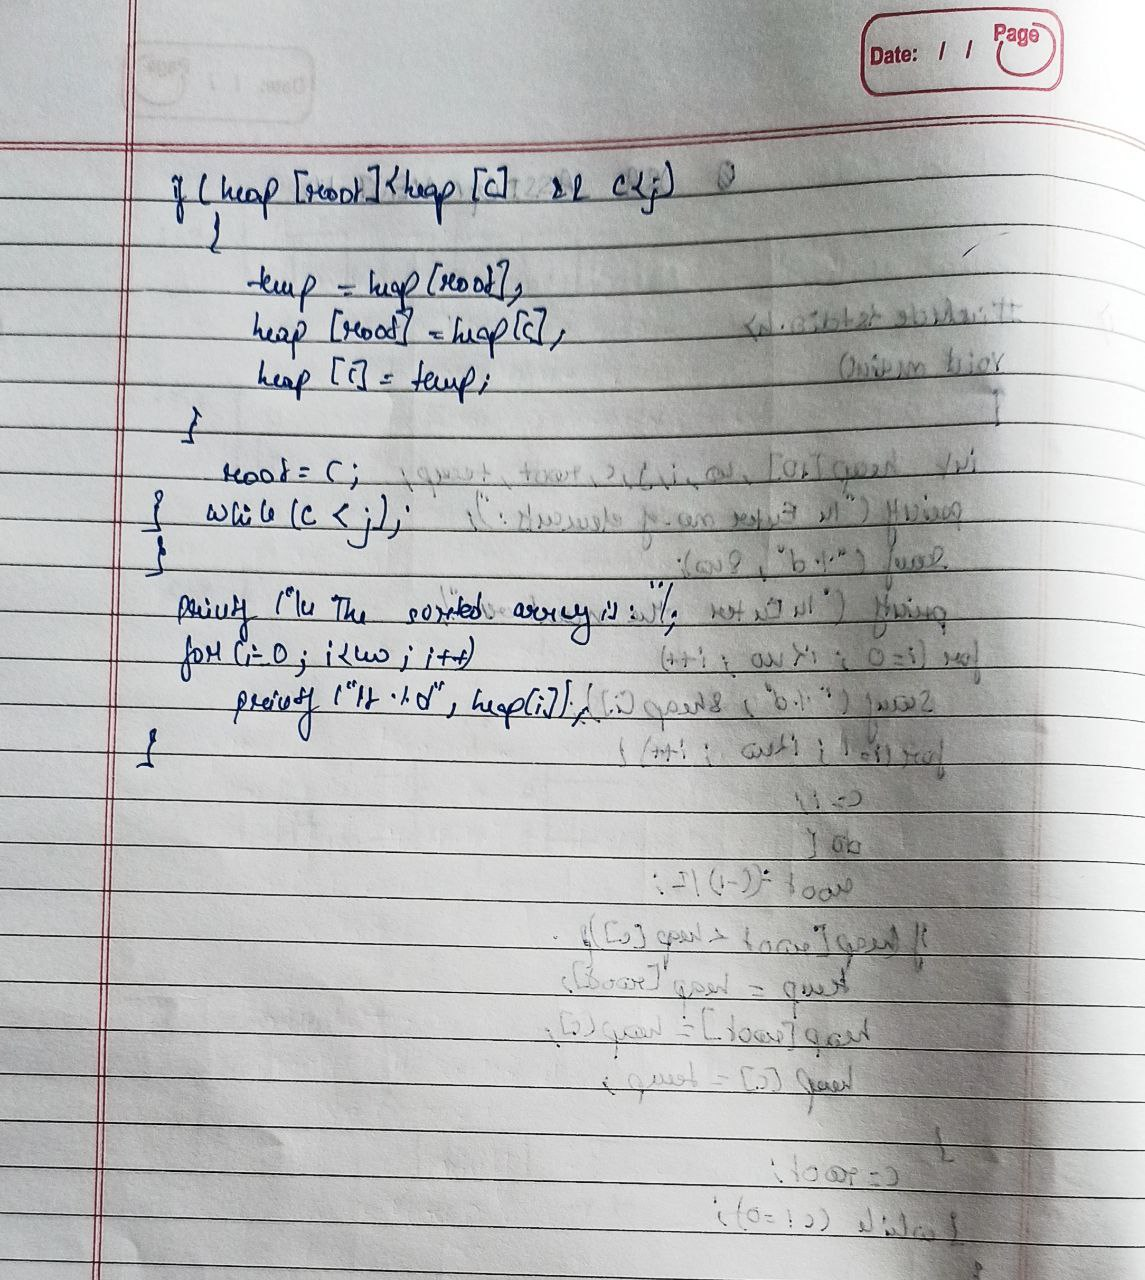 Date: / / Page
if (heap [root]<heap [c] && c<j)
{
temp = heap [root];
heap [root] = heap [c];
heap [c] = temp;
}
root = c;
} while (c < j);
}
printf ("\n The sorted array is : ");
for (i=0 ; i<no ; i++)
printf ("\t %d", heap[i]);
}